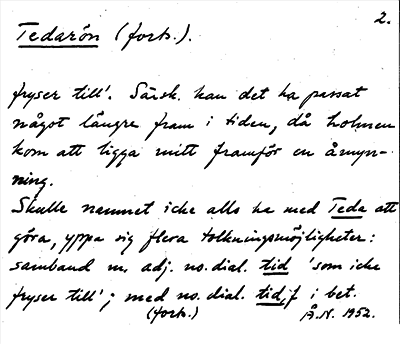 2.
Tedarön (forts.).
fryser till'. Särsk. kan det ha passat
något längre fram i tiden, då holmen
kom att ligga mitt framför en åmyn-
ning.
Skulle namnet icke alls ha med Teda att
göra, yppa sig flera tolkningsmöjligheter:
samband m. adj. no. dial. tid 'som icke
fryser till'; med no. dial. tid, f i bet.
(forts.) Å.N. 1952.